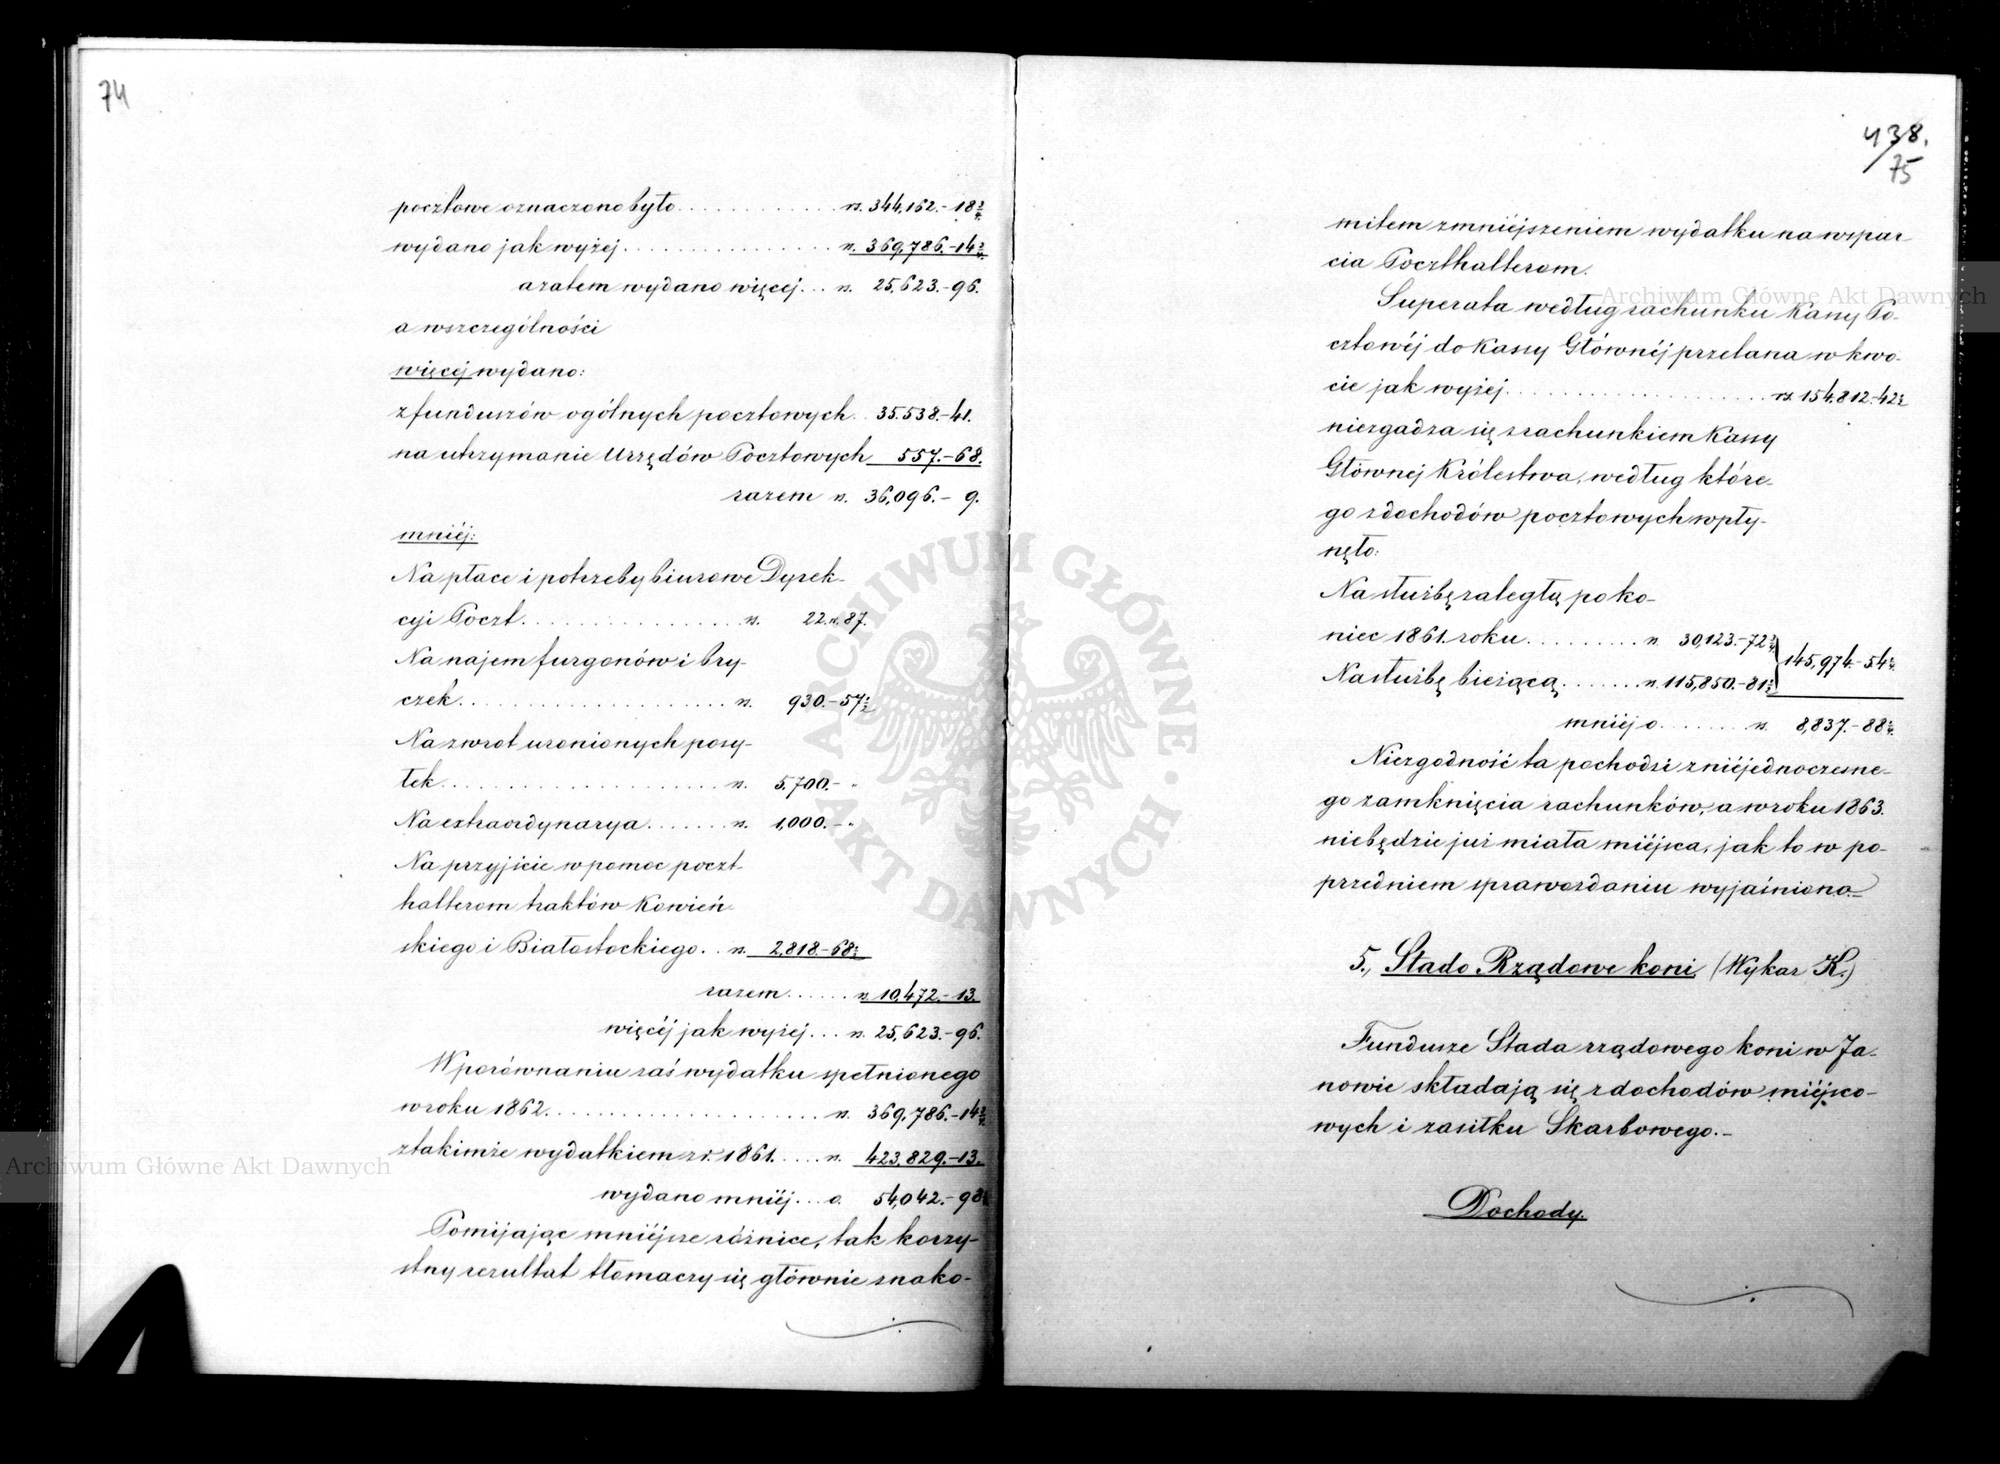 74
pocztowe oznaczono było . . . . . . . . . . . rs. 344,162.-18½
wydano jak wyżej . . . . . . . . . . . . . . . . rs. 369,786.-14½
a zatem wydano więcej . . . rs. 25,623.-96.
a w szczególności
więcej wydano:
z funduszów ogólnych pocztowych . . 35.538.-41.
na utrzymanie Urzędów Pocztowych 557.-68.
razem rs. 36,096.- 9.
mniéj:
Na płace i potrzeby biurowe Dyrek-
cyi Poczt . . . . . . . . . . . . . . . . rs. 22.rs.87.
Na najem furgonów i bry-
czek . . . . . . . . . . . . . . . . . . . . rs. 930.-57½
Na zwrot uronionych posy-
łek . . . . . . . . . . . . . . . . . . . . rs. 5,700.- "
Na extraordynarya . . . . . . . rs. 1,000.- "
Na przyjście w pomoc poczt
halterom traktów Kowień-
skiego i Białostockiego . . rs. 2,818.-68½
razem . . . . . . rs. 10,472.-13.
więcéj jak wyżej . . . rs. 25,623.-96.
W porównaniu zaś wydatku spełnionego
w roku 1862 . . . . . . . . . . . . . . . . . . rs. 369,786.-14½
z takimże wydatkiem z r. 1861. . . . . . rs. 423,829.-13.
wydano mniéj . . . o 54,042.-98½
Pomijając mniéjsze różnice, tak korzy-
stny rezultat tłomaczy się głównie znako-
438.
75
mitem zmniéjszeniem wydatku na wspar-
cia Poczthalterom.
Superata według rachunku Kassy Po-
cztowéj do Kassy Głównéj przelana w kwo-
cie jak wyżej . . . . . . . . . . . . . . . . . . . . rs. 154,812.-42½
niezgadza się z rachunkiem Kassy
Głównej Królestwa, według które-
go z dochodów pocztowych wpły-
nęło:
Na służbę zaległą po ko-
niec 1861. roku . . . . . . . . . rs. 30,123.-72½
145,974.-54½
Na służbę bieżącą . . . . . . . rs. 115,850.-81½
mniéj o . . . . . . . rs. 8,837.-88½
Niezgodność ta pochodzi z niéjednoczesne-
go zamknięcia rachunków, a w roku 1863.
niebędzie już miała miéjsca, jak to w po-
przedniem sprawozdaniu wyjaśniono.-
5., Stado Rządowe koni (Wykaz K.)
Fundusze Stada rządowego koni w Ja-
nowie składają się z dochodów miéjsco-
wych i zasiłku Skarbowego.-
Dochody.
Archiwum Główne Akt Dawnych
Archiwum Główne Akt Dawnych
ARCHIWUM GŁÓWNE · AKT DAWNYCH ·